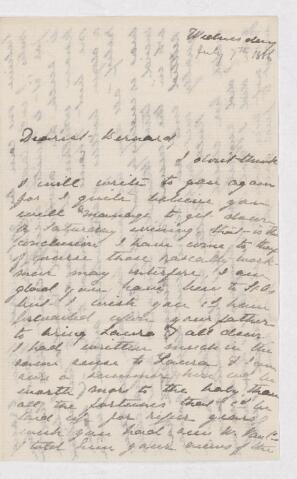 Wednesday
July 7th 1886
Dearest Bernard,
I dont think
I will write to you again
for I quite believe you
will manage to get down
on Saturday evening that is the
conclusion I have come to they
of course those rascally work
men may interfere I am
glad you have been to
but I wish you I have
your father
to bring Laura & all down
I had written much in the
same sense to Laura & I am
sure a summer here will be
worth more to the baby than
all the fortunes that
laid up for riper years
I wish you had seen
I told him your views of the